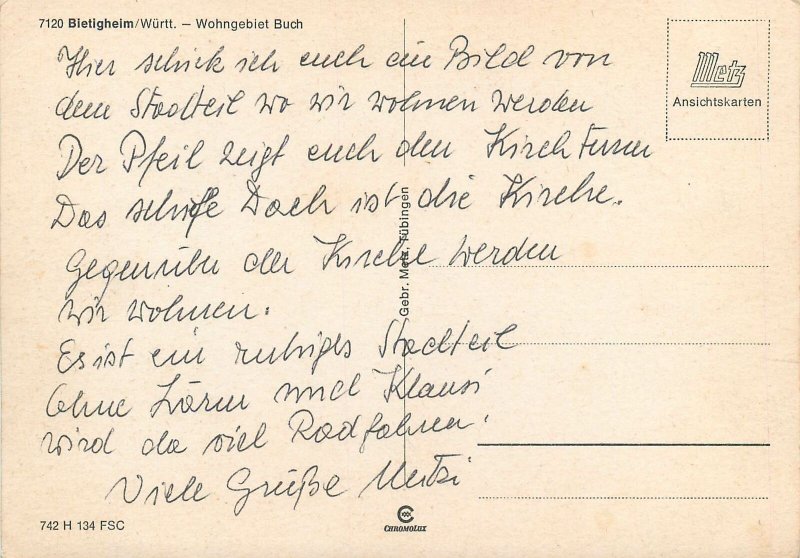 7120 Bietigheim/Württ. – Wohngebiet Buch
Metz
Ansichtskarten
Hier schick ich euch ein Bild von
dem Stadteil wo wir wohnen werden
Der Pfeil zeigt euch den Kirchturm
Das schiefe Dach ist die Kirche.
Gegenüber der Kirche werden
wir wohnen.
Es ist ein ruhiges Stadteil
Ohne Lärm und Klausi
wird da viel Radfahren.
Viele Grüße
Gebr. Metz, Tübingen
742 H 134 FSC
CHROMOLUX